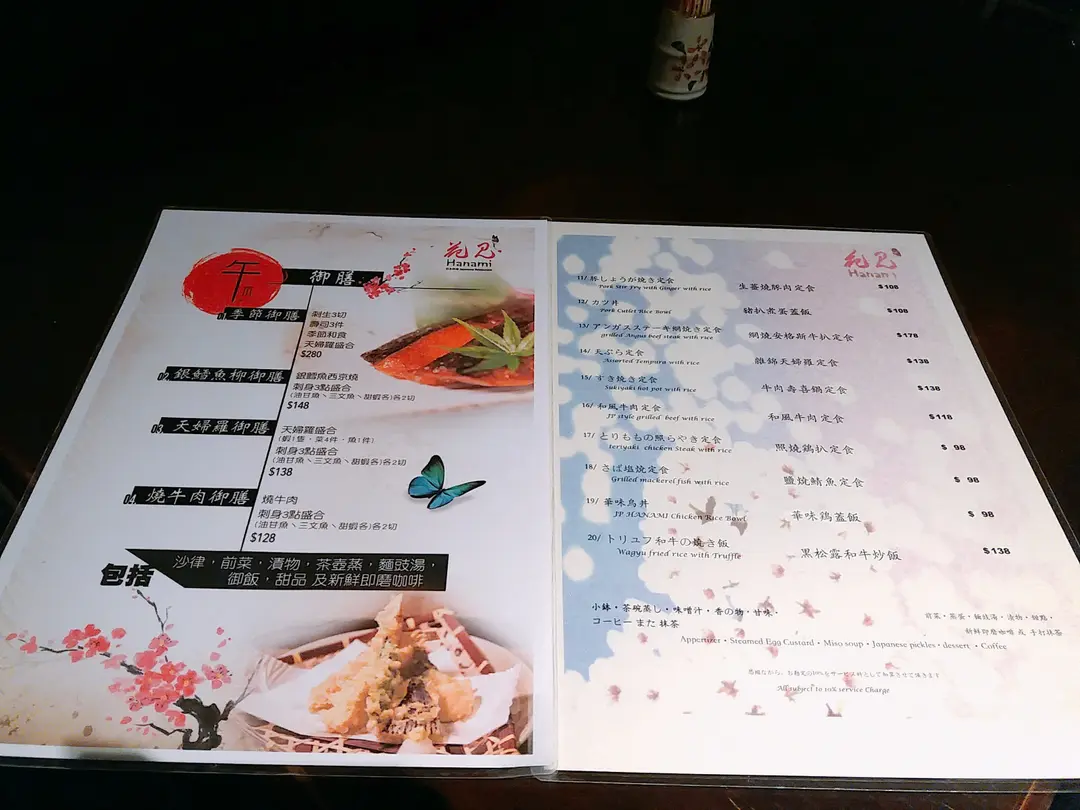 午
御膳
花見
Hanami
01 季節御膳
刺生3切
壽司3件
季節和食
天婦羅盛合
$280
02 銀鱈魚柳御膳
銀鱈魚西京燒
刺身3點盛合
(油甘魚、三文魚、甜蝦各)各2切
$148
03 天婦羅御膳
天婦羅盛合
(蝦1隻、菜4件、魚1件)
刺身3點盛合
(油甘魚、三文魚、甜蝦各)各2切
$138
04 燒牛肉御膳
燒牛肉
刺身3點盛合
(油甘魚、三文魚、甜蝦各)各2切
$128
包括
沙律,前菜,漬物,茶壺蒸,麵豉湯,
御飯,甜品 及新鮮即磨咖啡
花見
Hanami
11/ 豚しょうが焼き定食 生薑燒豚肉定食 $108
Pork Stir Fry with Ginger with rice
12/ カツ丼 豬扒煮蛋蓋飯 $108
Pork Cutlet Rice Bowl
13/ アンガスステーキ網焼き定食 網燒安格斯牛扒定食 $178
grilled Angus beef steak with rice
14/ 天ぷら定食 雜錦天婦羅定食 $138
Assorted Tempura with rice
15/ すき焼き定食 牛肉壽喜鍋定食 $138
Sukiyaki hot pot with rice
16/ 和風牛肉定食 和風牛肉定食 $118
JP style grilled beef with rice
17/ とりももの照らやき定食 照燒鶏扒定食 $ 98
Teriyaki chicken Steak with rice
18/ さば塩焼定食 鹽燒鯖魚定食 $ 98
Grilled mackerel fish with rice
19/ 華味鳥丼 華味鶏蓋飯 $ 98
JP HANAMI Chicken Rice Bowl
20/ トリユフ和牛の焼き飯 黒松露和牛炒飯 $138
Wagyu fried rice with Truffle
小鉢・茶碗蒸し・味噌汁・香の物・甘味・
コーヒー また 抹茶
前菜・蒸蛋・麵豉湯・漬物・甜點・
新鮮即磨咖啡 或 手打抹茶
Appetizer・Steamed Egg Custard・Miso soup・Japanese pickles・dessert・Coffee
All subject to 10% service Charge